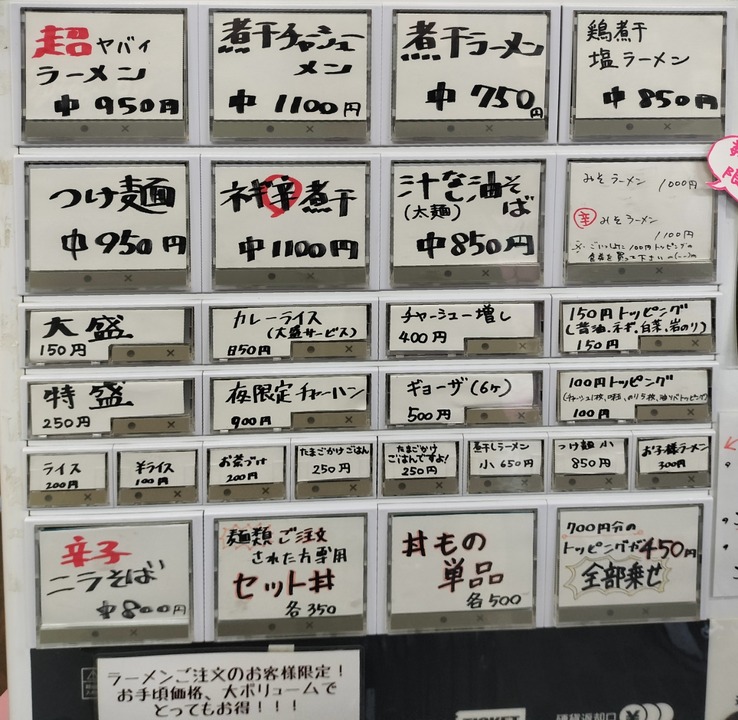 超ヤバイ
ラーメン
中 950円
煮干チャシュー
メン
中 1100円
煮干ラーメン
中 750円
鶏煮干
塩ラーメン
中 850円
つけ麺
中 950円
辛煮干
中 1100円
汁なし油そば
(太麺)
中 850円
みそラーメン 1000円
辛 みそラーメン
1100円
100円トッピングの
食券を買って下さい m(__)m
大盛
150円
カレーライス
(大盛サービス)
850円
チャーシュー増し
400円
150円トッピング
(醤油、ネギ、白菜、岩のり)
150円
特盛
250円
夜限定チャーハン
900円
ギョーザ(6ヶ)
500円
100円トッピング
100円
ライス
200円
半ライス
100円
お茶づけ
200円
たまごかけごはん
250円
たまごかけ
ごはんですよ!
250円
煮干しラーメン
小 650円
つけ麺 小
850円
お子様ラーメン
300円
辛子
ニラそば
中 800円
麺類ご注文
された方専用
セット丼
各350
丼もの
単品
各500
700円分の
トッピングが450円
全部乗せ
ラーメンご注文のお客様限定!
お手頃価格、大ボリュームで
とってもお得!!!
TICKET